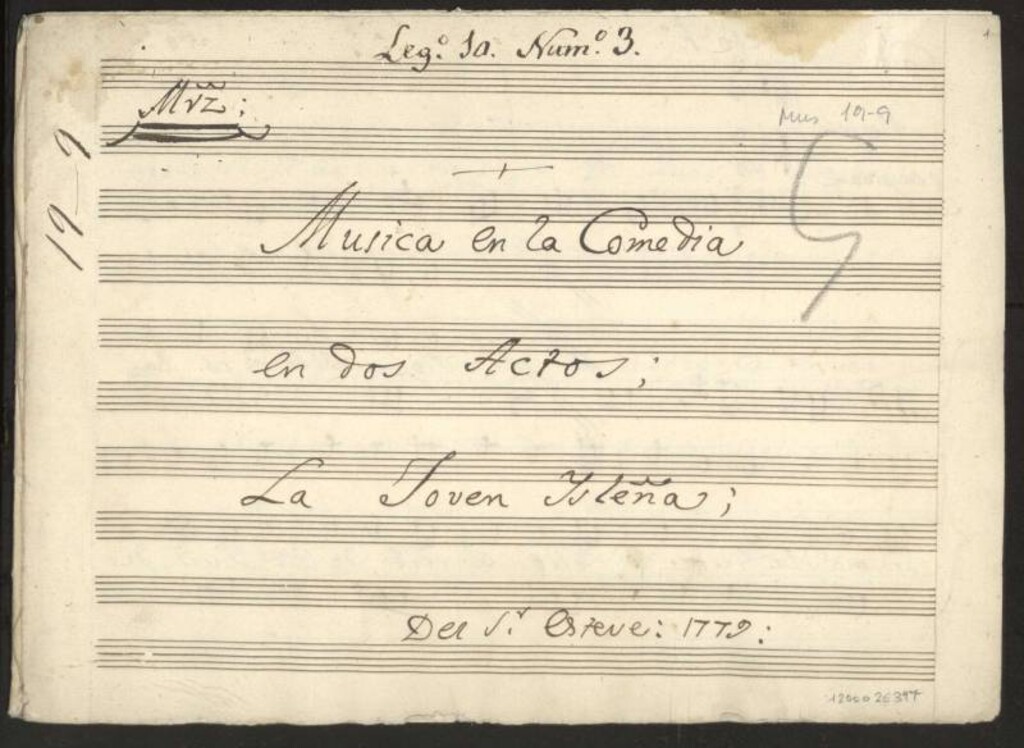 Leg.º 10. Num.º 3.
Mrz:
Mus 19-9
19-9
Musica en la Comedia
en dos Actos;
La Joven Ysleña;
Del S.r Esteve: 1779:
1200026397